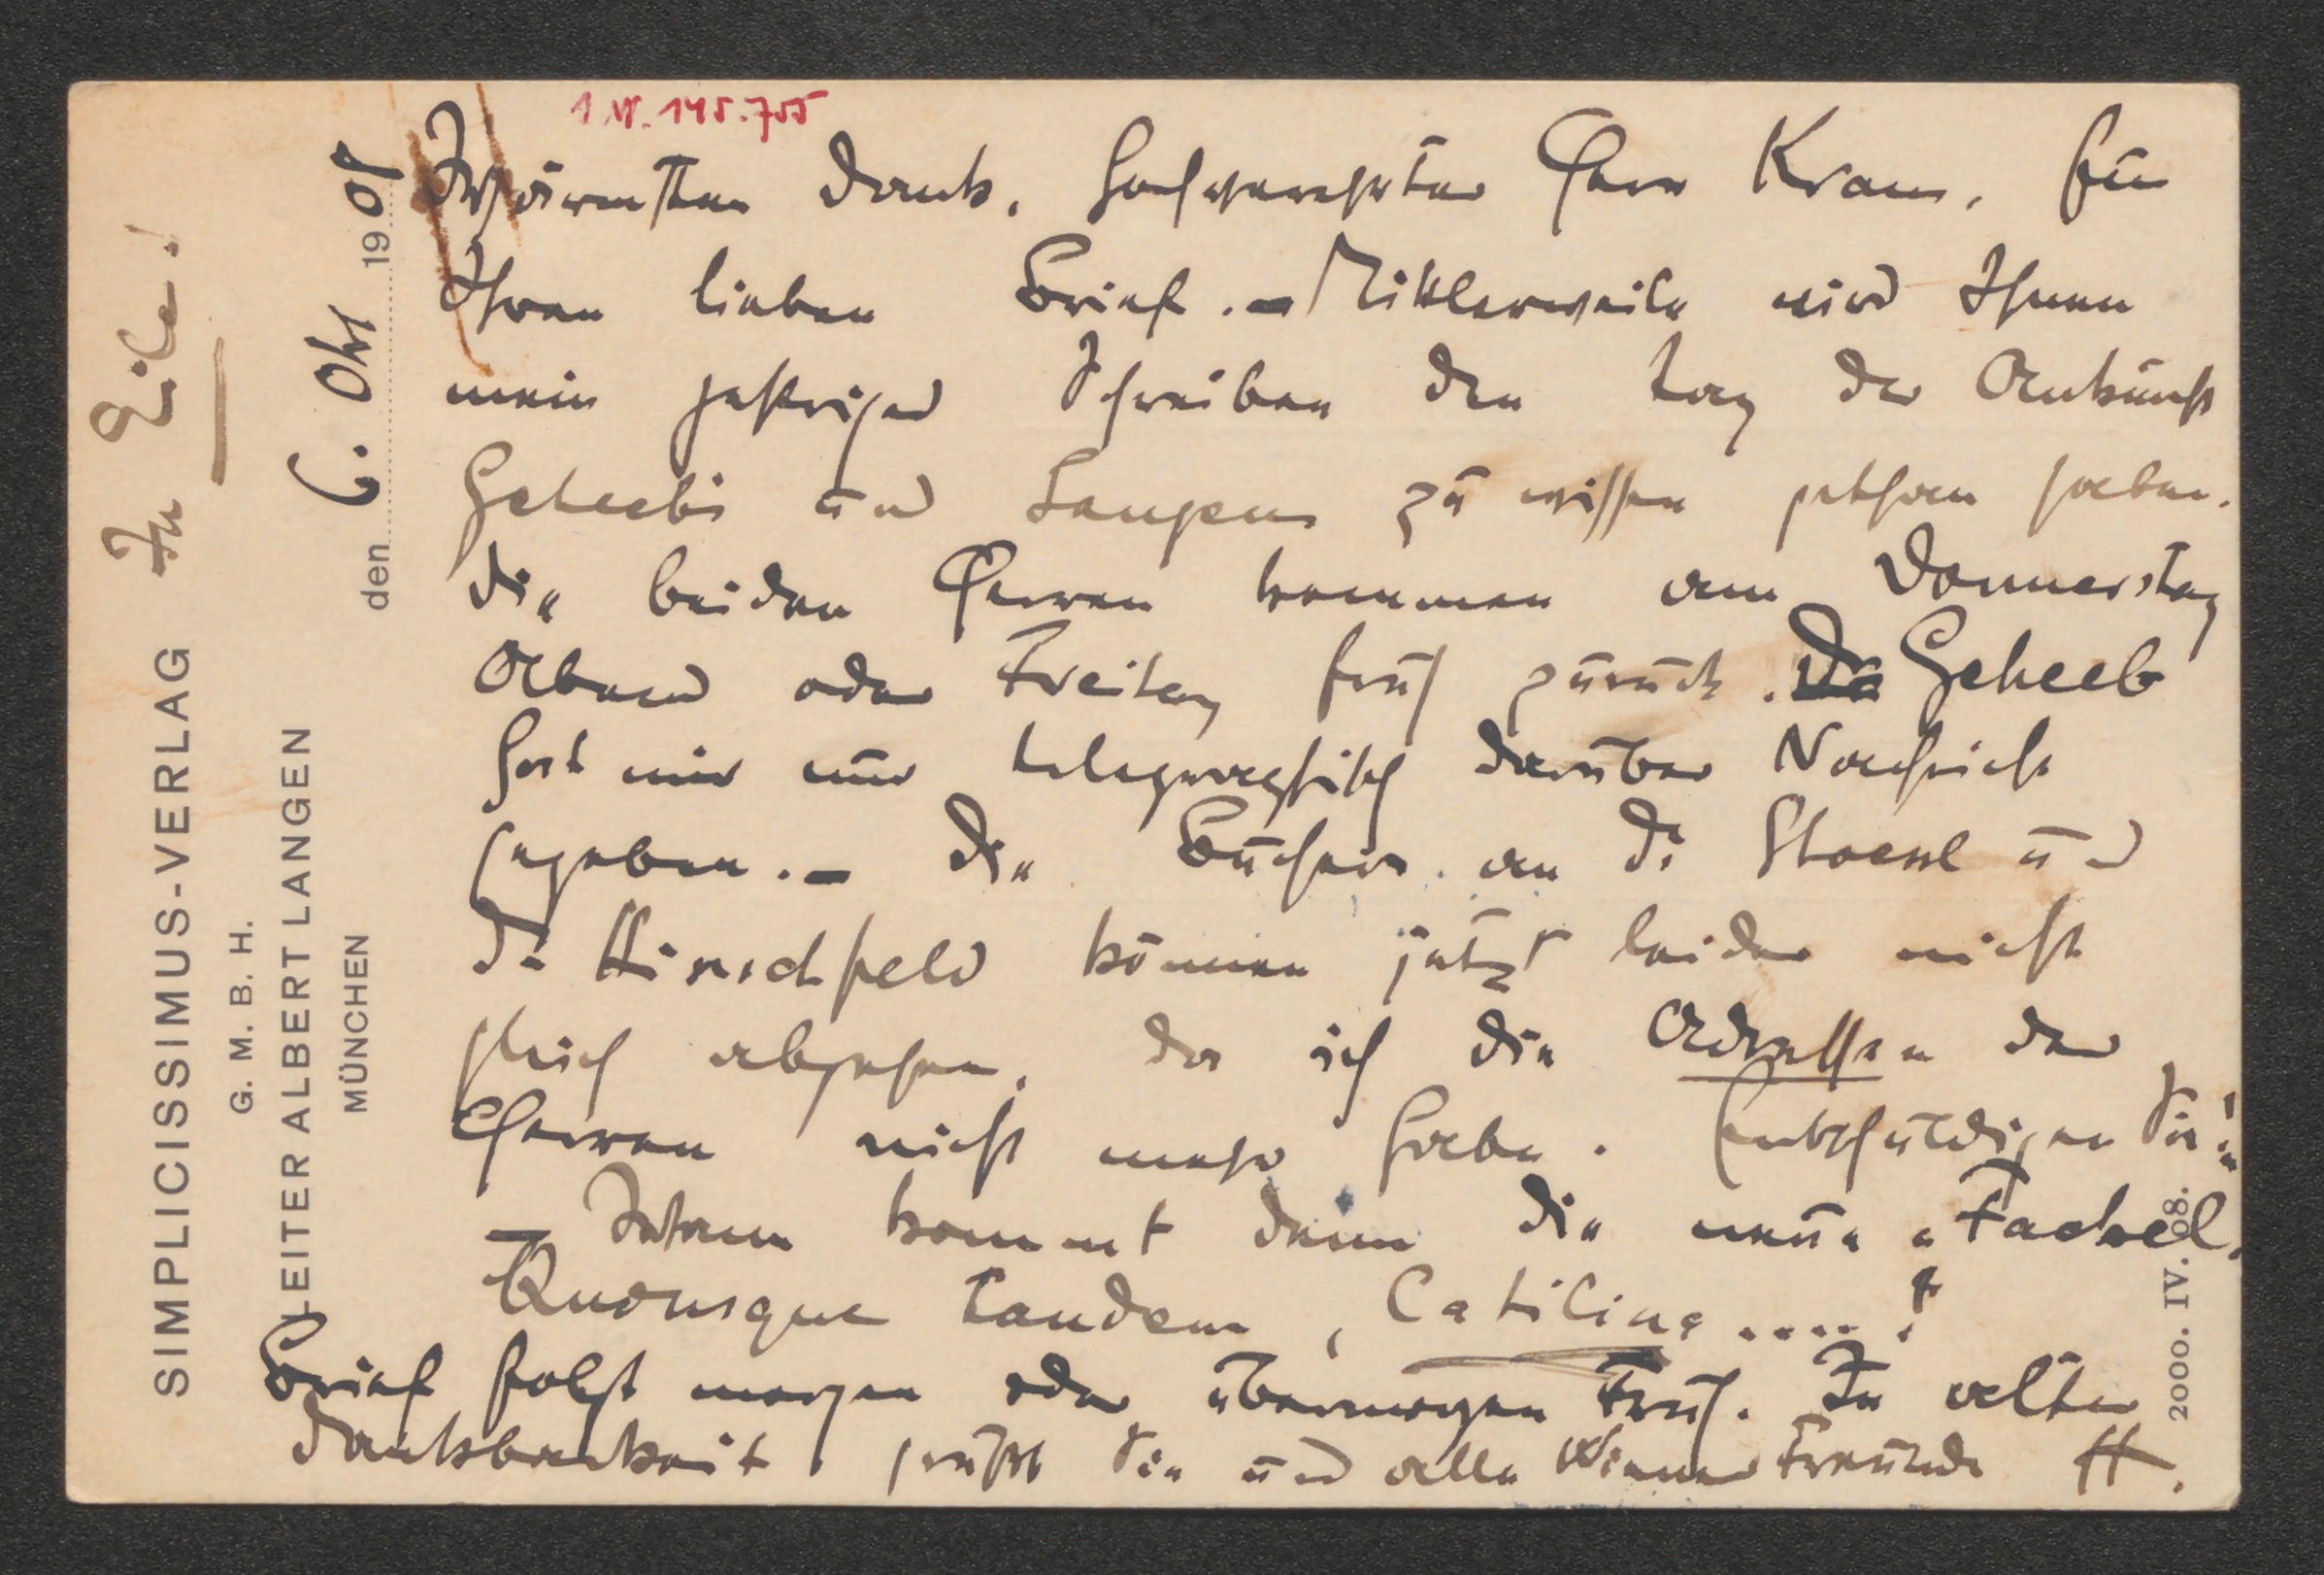 I.N. 145.755
SIMPLICISSIMUS-VERLAG
G. M. B. H.
LEITER ALBERT LANGEN
MÜNCHEN
In Eile!
den 6. Okt 1908
Wärmsten Dank, hochverehrter Herr Kraus, für
Ihren lieben Brief. – Mittlerweile wird Ihnen
mein gestriges Schreiben den Tag der Ankunft
Geheebs und Langens zu wissen gethan haben.
Die beiden Herren kommen am Donnerstag
Abend oder Freitag früh zurück. Geheeb
hat mir nur telegraphisch darüber Nachricht
gegeben. – Die Bücher an Dr Stoessl und
Dr Hirschfeld können jetzt leider nicht
gleich abgehen, da ich die Adressen der
Herren nicht mehr habe. Entschuldigen Sie!
– Wann kommt denn die neue „Fackel.
Quousque tandem, Catilina ....?
Brief folgt morgen oder übermorgen Früh. In alter
Dankbarkeit grüßt Sie und alle Wiener Freunde H.
2000. IV. 08.